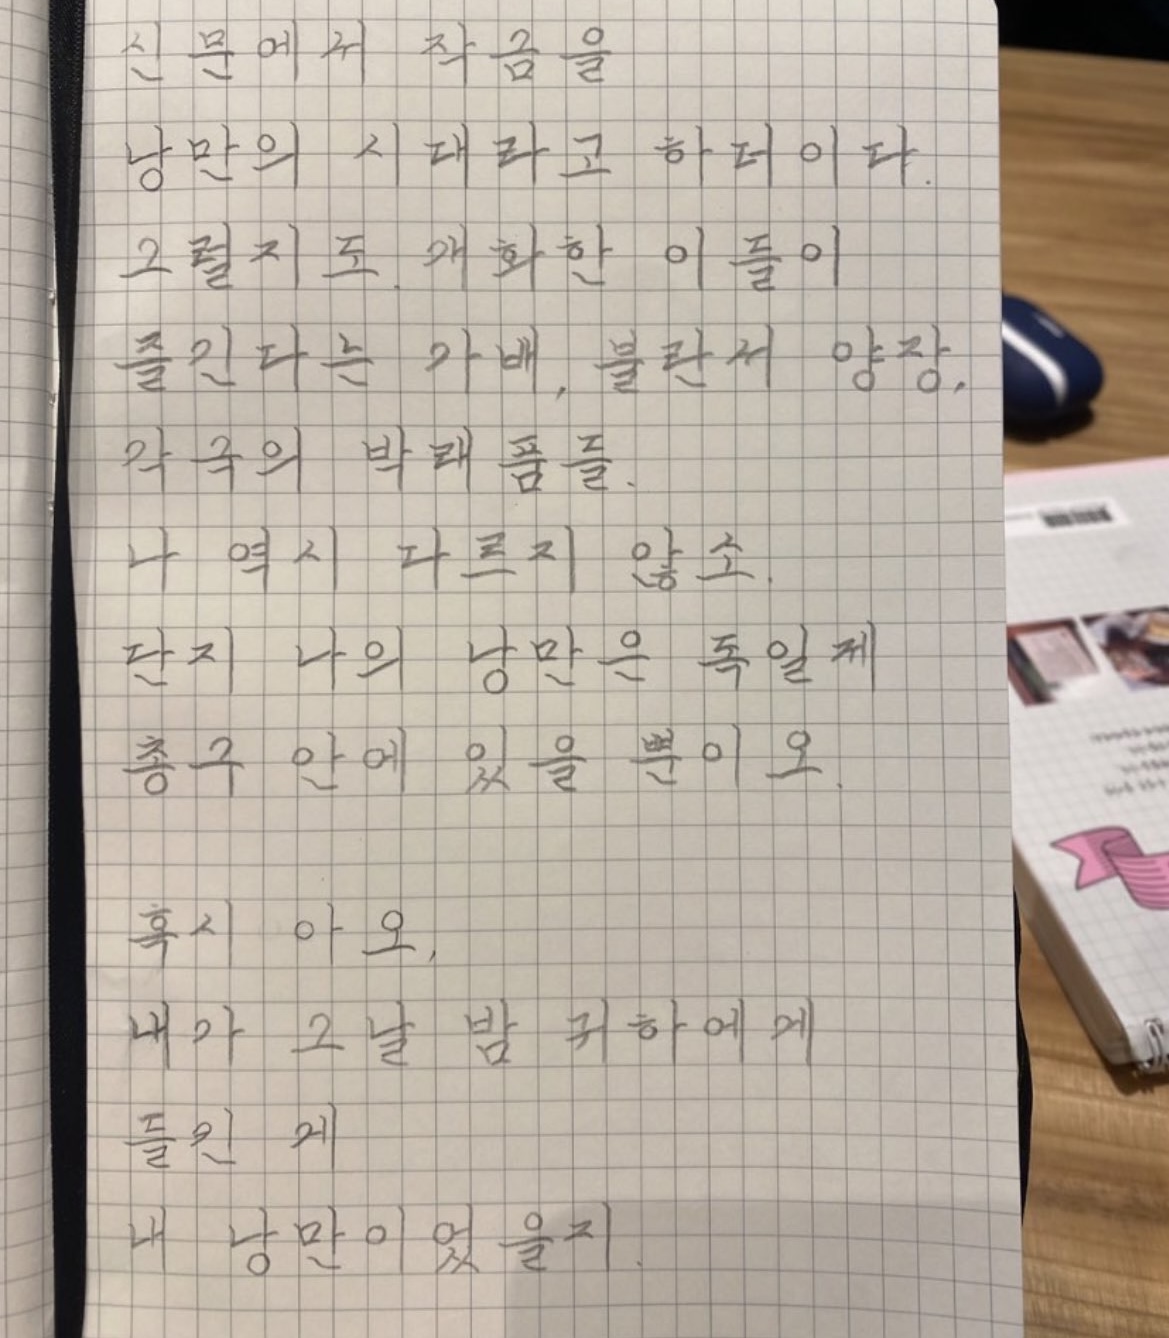 신문에서 작금을
낭만의 시대라고 하더이다.
그럴지도. 개화한 이들이
즐긴다는 가배, 불란서 양장,
각국의 박래품들.
나 역시 다르지 않소.
단지 나의 낭만은 독일제
총구 안에 있을 뿐이오.
혹시 아오,
내가 그날 밤 귀하에게
들킨 게
내 낭만이었을지.